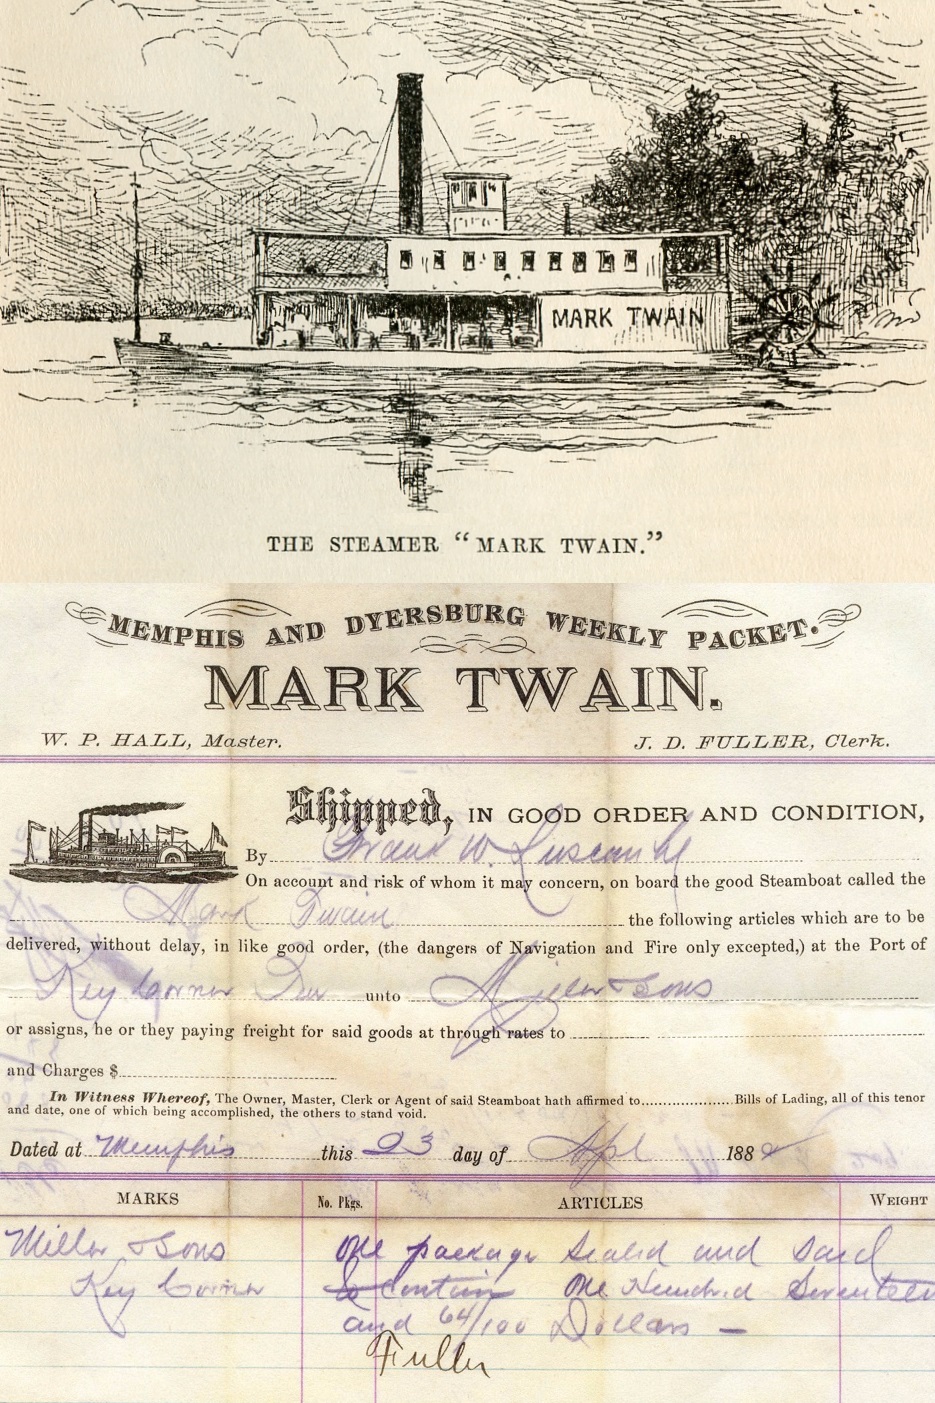 MARK TWAIN
THE STEAMER “MARK TWAIN.”
MEMPHIS AND DYERSBURG WEEKLY PACKET.
MARK TWAIN.
W. P. HALL, Master. J. D. FULLER, Clerk.
Shipped, IN GOOD ORDER AND CONDITION,
By W.
On account and risk of whom it may concern, on board the good Steamboat called the
Mark Twain the following articles which are to be
delivered, without delay, in like good order, (the dangers of Navigation and Fire only excepted,) at the Port of
Key Corner unto Miller & Sons
or assigns, he or they paying freight for said goods at through rates to
and Charges $
In Witness Whereof, The Owner, Master, Clerk or Agent of said Steamboat hath affirmed to Bills of Lading, all of this tenor
and date, one of which being accomplished, the others to stand void.
Dated at Memphis this 23 day of Apl 188
MARKS No. Pkgs. ARTICLES WEIGHT
Miller & Sons One package Sealed and Said
Key Corner to contain One Hundred Seventeen
and 64/100 Dollars –
Fuller